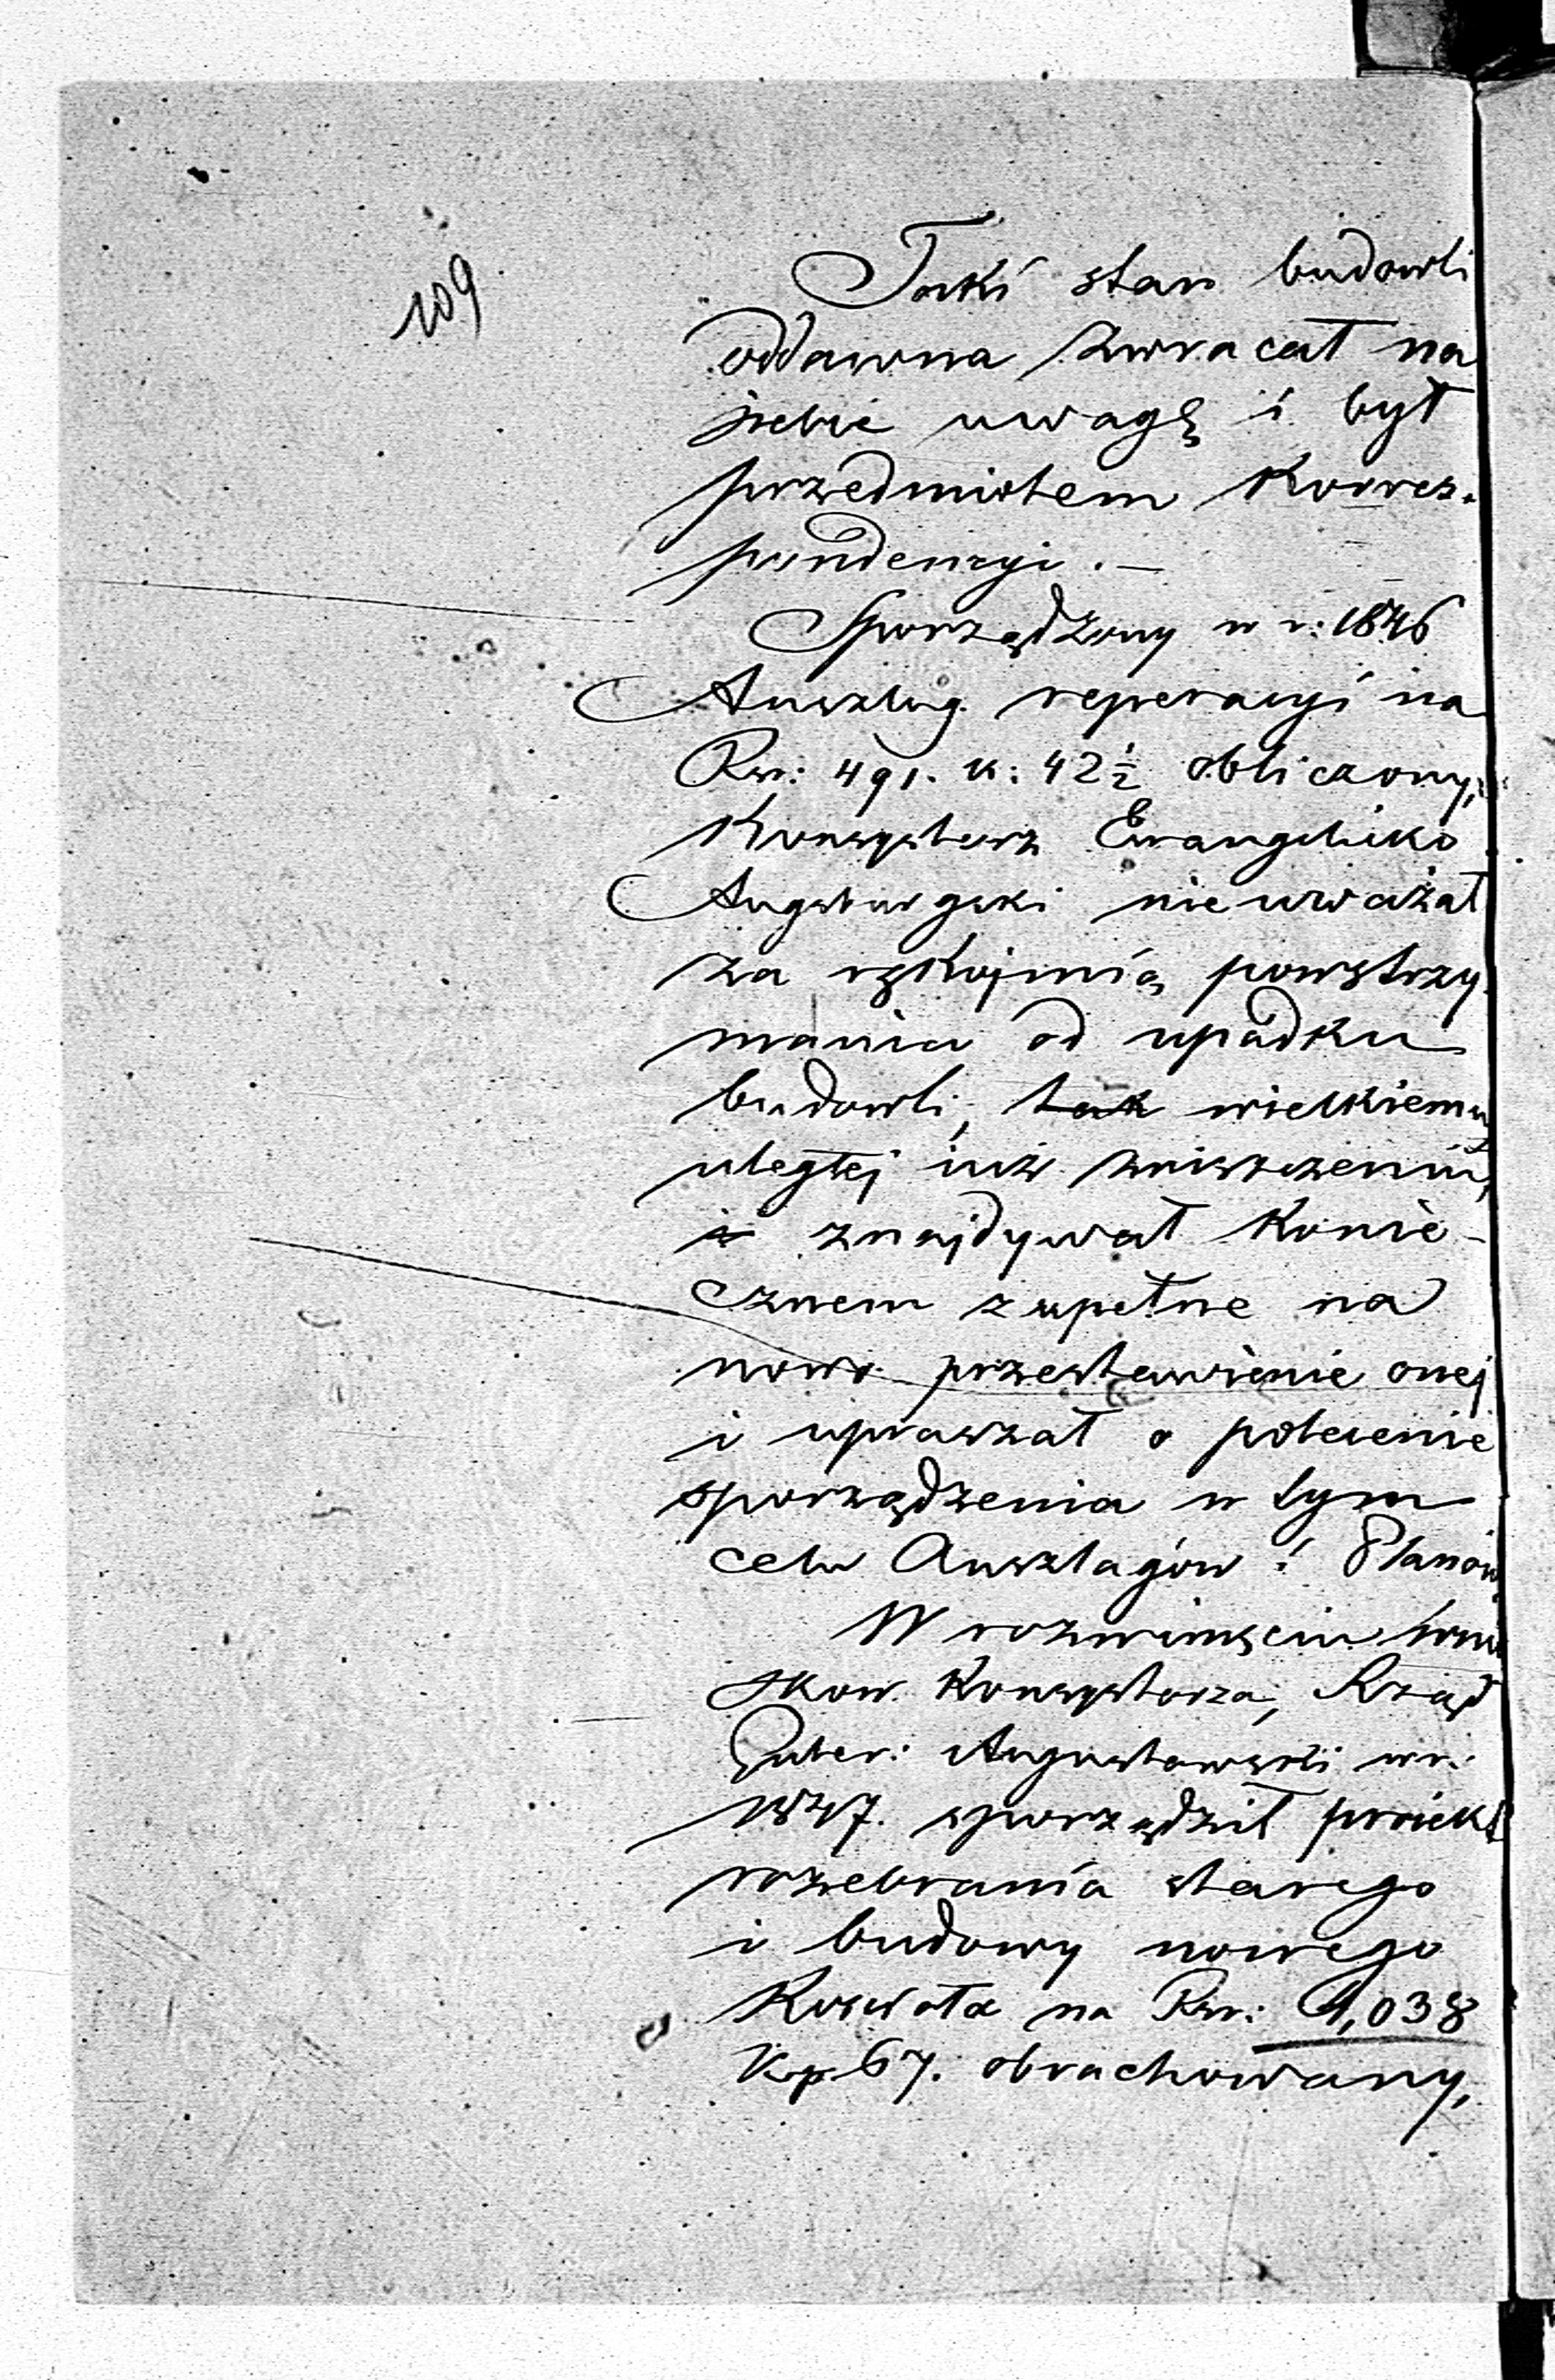 109
Taki stan budowli
oddawna zwracał na
siebie uwagę i był
przedmiotem Korres-
pondencyi. —
Sporządzony w r: 1846
Anszlag reperacyi na
Rsr: 491. k: 42 ½ obliczony,
Konsystorz Ewangelicko
Augsburgski nie uważał
za rękojmią powstrzy-
mania od upadku
budowli, tak wielkiemu
uległej iuż zniszczeniu,
znajdywał Konie-
cznem zupełne na
nowo przestawienie onej
i upraszał o polecenie
sporządzenia w tym
celu Anszlagów i Planów
W rozwinięciu wnio
sków Konsystorza, Rząd
Guber: Augustowski w r:
1847. sporządził proiekt
rozebrania starego
i budowy nowego
Kościoła na Rsr: 9,038
Kp 67. obrachowany,